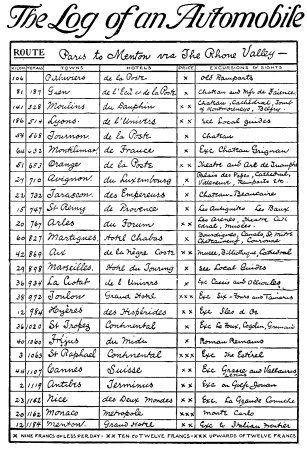 The Log of an Automobile
ROUTE Paris to Menton via The Rhone Valley —
KILOM TOTAL TOWNS HOTELS PRICE EXCURSIONS OR SIGHTS
106 de la Poste × Old Ramparts
81 187 Gien de l'Ecu et de la Poste × Chateau and Mfg de Faience
141 328 Moulins du Dauphin ×× Chateau, Cathedral, Tomb of Montmorency, Belfry
186 514 Lyons de l'Univers ×× see Local guides
54 568 Tournon de la Poste × Chateau
64 632 Montelimar de France × Exc Chateau Grignan
51 Orange de la Poste ×× Theatre and Arc de Triomphe
27 710 Avignon du Luxembourg × Palais des Papes, Cathedral, Villeneuve, Ramparts Etc.
22 732 Tarascon des Empereurs × Chateau, Beaucaire
15 747 St Remy de Provence × Les Antiquites Les Baux
20 767 Arles du Forum ×× Les Arenes, Theatre Cathedral, Musées
60 827 Martigues Hotel Chabas × Bourdigues, Canals, St Mitre Chateauneuf, Couronne
42 869 Aix de la Nègre Coste ×× Musée, Bibliotheque, Cathedral
29 898 Marseilles Hotel du Touring × see Local Guides
36 934 La Ciotat de l'Univers × Exc Cassis and Ollioules
38 972 Toulon Grand Hotel ×× Exc Six-Fours and Tamaris
12 984 Hyères des Hesperides ×× Exc Iles d'Or
36 1020 St Tropez Continental × Exc La Foux, Cogolin, Grimaud
40 1060 Fréjus du Midi × Roman Remains
3 1063 St Raphael Continental ××× Exc The Esterel
44 1107 Cannes Suisse ×× Exc Grasse and Vallauris Lerins
2 1119 Antibes Terminus ×× Exc Golfe Jouan
23 1142 Nice des Deux Mondes ×× Exc La Grande Corniche
20 1162 Monaco Metropole ××× Monte Carlo
12 1184 Menton Grand Hotel ×× Exc to Italian Frontier
× NINE FRANCS OR LESS PER DAY - ×× TEN TO TWELVE FRANCS - ××× UPWARDS OF TWELVE FRANCS